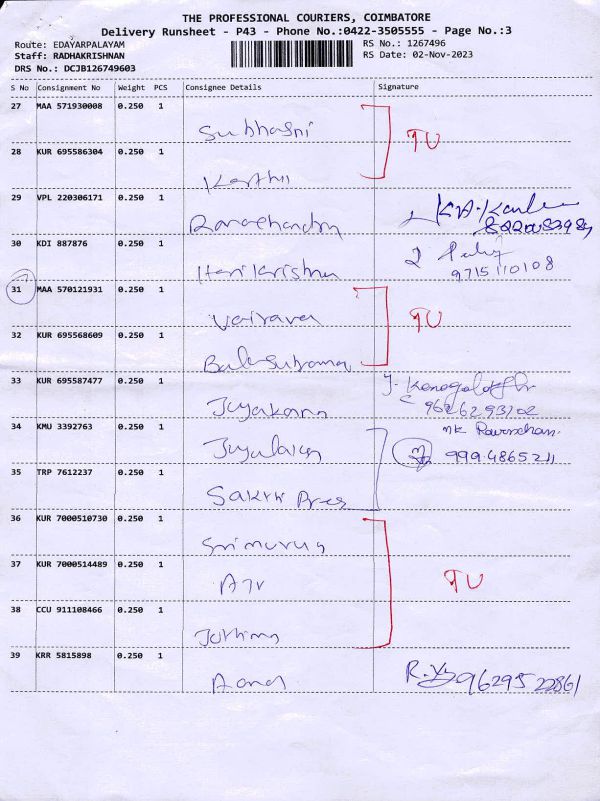 THE PROFESSIONAL COURIERS, COIMBATORE
Delivery Runsheet - P43 - Phone No.:0422-3505555 - Page No.:3
Route: EDAYARPALAYAM
RS No.: 1267496
Staff: RADHAKRISHNAN
RS Date: 02-Nov-2023
DRS No.: DCJB126749603
S No Consignment No Weight PCS Consignee Details Signature
27 MAA 571930008 0.250 1
Subhasni
TU
28 KUR 695586304 0.250 1
Karthi
29 VPL 220306171 0.250 1
Ramachandra
30 KDI 887876 0.250 1
Harikrishna
9715110108
31 MAA 570121931 0.250 1
Vairava
TU
32 KUR 695568609 0.250 1
Balasubraman
33 KUR 695587477 0.250 1
Jeyakann
9626293702
34 KMU 3392763 0.250 1
9994865211
35 TRP 7612237 0.250 1
Sakthi Press
36 KUR 7000510730 0.250 1
Srimurug
37 KUR 7000514489 0.250 1
TU
38 CCU 911108466 0.250 1
39 KRR 5815898 0.250 1
Anand
9629522861